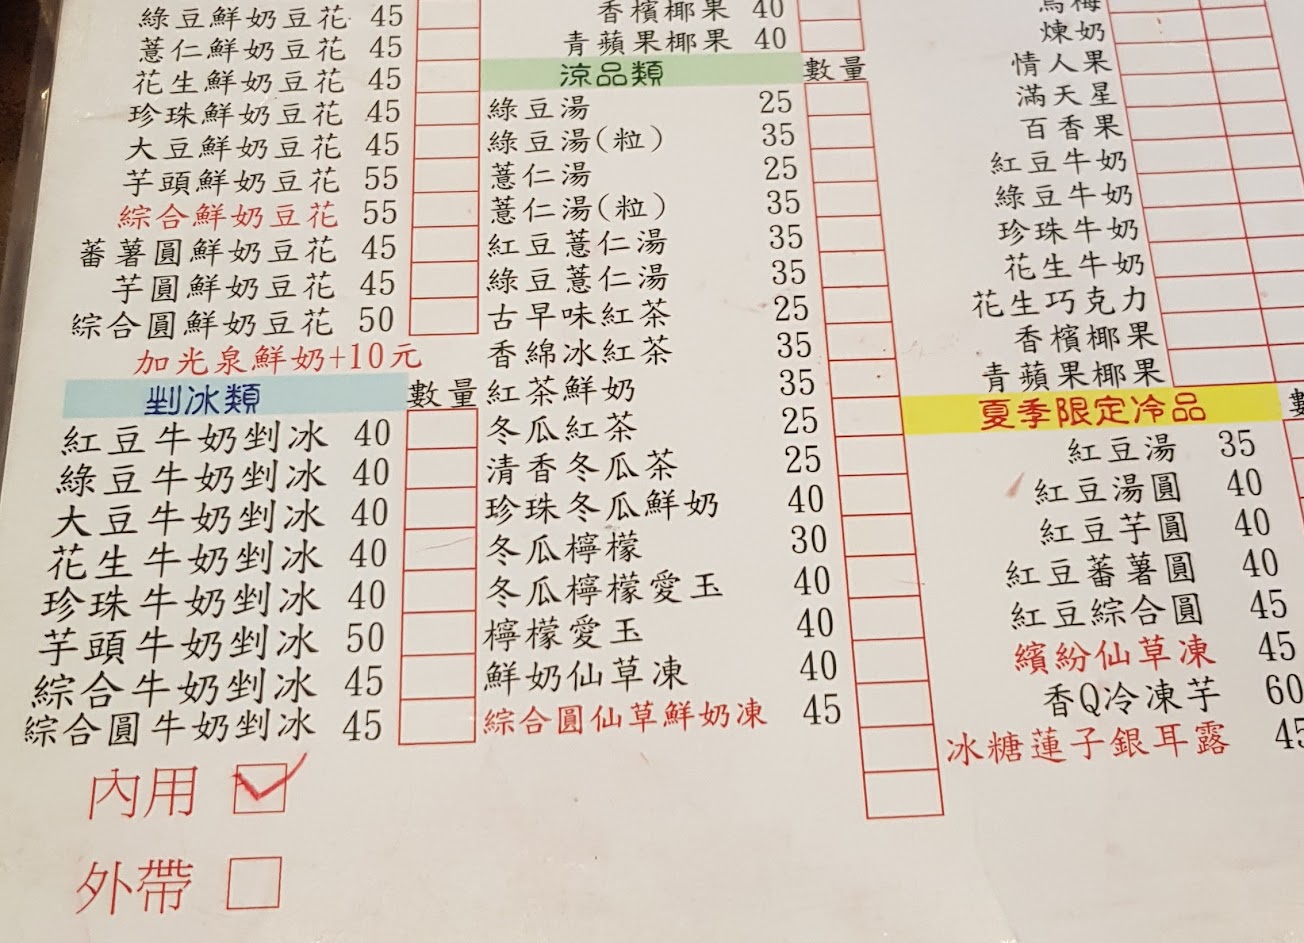 綠豆鮮奶豆花 45
薏仁鮮奶豆花 45
花生鮮奶豆花 45
珍珠鮮奶豆花 45
大豆鮮奶豆花 45
芋頭鮮奶豆花 55
綜合鮮奶豆花 55
蕃薯圓鮮奶豆花 45
芋圓鮮奶豆花 45
綜合圓鮮奶豆花 50
加光泉鮮奶+10元
剉冰類 數量
紅豆牛奶剉冰 40
綠豆牛奶剉冰 40
大豆牛奶剉冰 40
花生牛奶剉冰 40
珍珠牛奶剉冰 40
芋頭牛奶剉冰 50
綜合牛奶剉冰 45
綜合圓牛奶剉冰 45
內用
外帶
香檳椰果 40
青蘋果椰果 40
涼品類 數量
綠豆湯 25
綠豆湯(粒) 35
薏仁湯 25
薏仁湯(粒) 35
紅豆薏仁湯 35
綠豆薏仁湯 35
古早味紅茶 25
香綿冰紅茶 35
紅茶鮮奶 35
冬瓜紅茶 25
清香冬瓜茶 25
珍珠冬瓜鮮奶 40
冬瓜檸檬 30
冬瓜檸檬愛玉 40
檸檬愛玉 40
鮮奶仙草凍 40
綜合圓仙草鮮奶凍 45
烏梅
煉奶
情人果
滿天星
百香果
紅豆牛奶
綠豆牛奶
珍珠牛奶
花生牛奶
花生巧克力
香檳椰果
青蘋果椰果
夏季限定冷品 數
紅豆湯 35
紅豆湯圓 40
紅豆芋圓 40
紅豆蕃薯圓 40
紅豆綜合圓 45
繽紛仙草凍 45
香Q冷凍芋 60
冰糖蓮子銀耳露 45